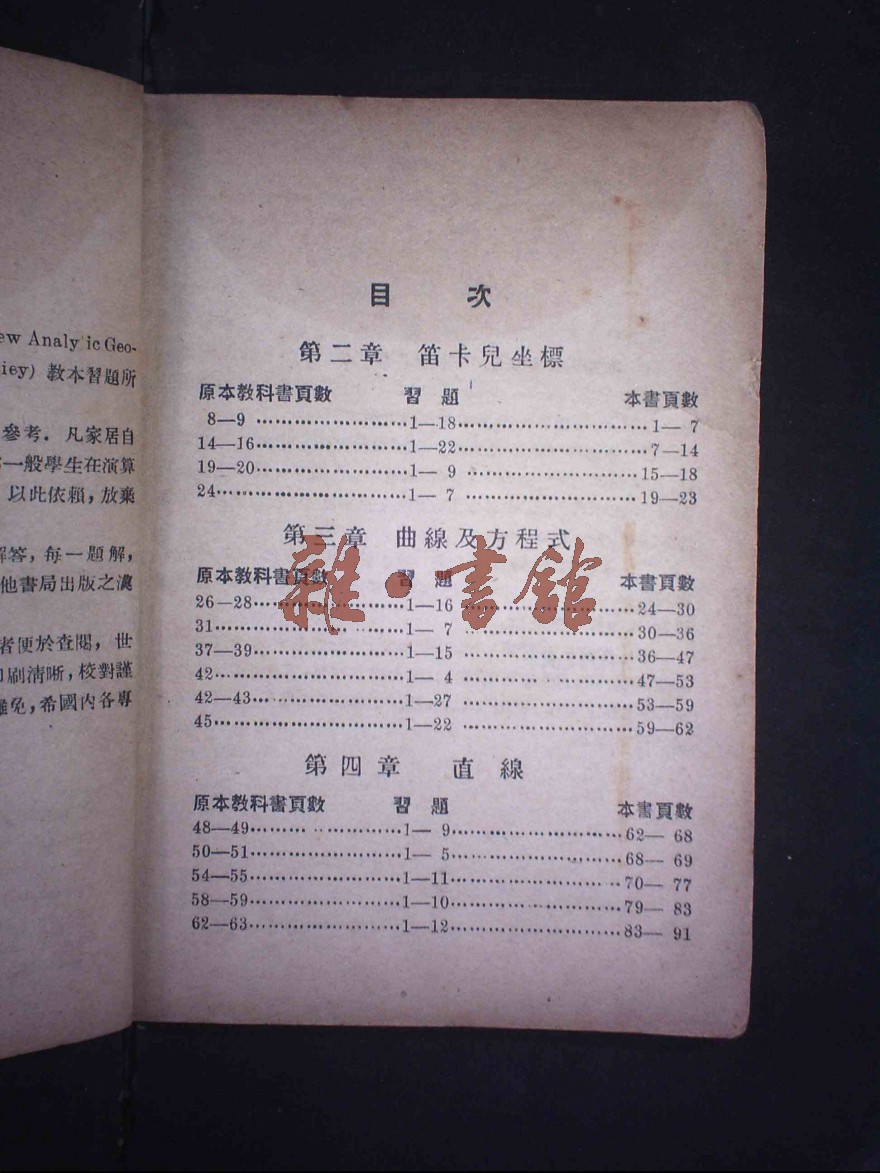 ew Analytic Geo-
iey) 教本習題所
參考. 凡家居自
一般學生在演算
以此依賴, 放棄
解答, 每一題解,
他書局出版之漢
者便於查閱, 世
印刷清晰, 校對謹
難免, 希國內各專
目 次
第二章 笛卡兒坐標
原本教科書頁數 習題 本書頁數
8—9 ........................1—18..............................1— 7
14—16.....................1—22..............................7—14
19—20.....................1— 9 ........................15—18
24..........................1— 7 ........................19—23
第三章 曲線及方程式
原本教科書頁數 習題 本書頁數
26—28.....................1—16 ........................24—30
31..........................1— 7 ........................30—36
37—39.....................1—15 ........................36—47
42..........................1— 4 ........................47—53
42—43.....................1—27 ........................53—59
45..........................1—22 ........................59—62
第四章 直線
原本教科書頁數 習題 本書頁數
48—49.....................1— 9........................62— 68
50—51.....................1— 5........................68— 69
54—55.....................1—11........................70— 77
58—59.....................1—10........................79— 83
62—63.....................1—12........................83— 91
雜·書館